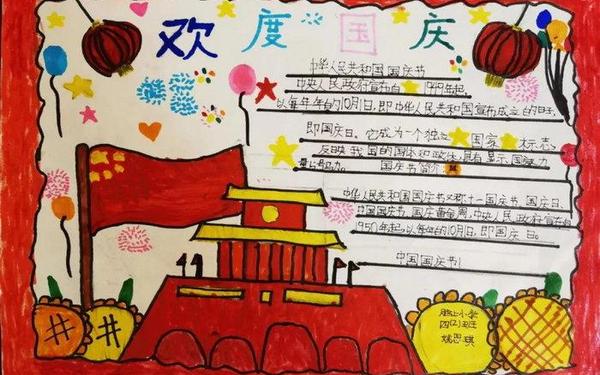 欢度国庆
中华人民共和国国庆节
中央人民政府宣布自1949年起,
以每年的10月1日,即中华人民共和国宣布成立的日子,
即国庆日。它成为一个独立国家标志,
反映我国的国体和政体,具有显示国家力
量 国庆节简介
中华人民共和国国庆节又称十一国庆节、国庆日、
中国国庆节、国庆黄金周,中央人民政府宣布自
1950年起,以每年的10月1日,即国庆日。
中国国庆节!
小学
四(2)班
姚思琪